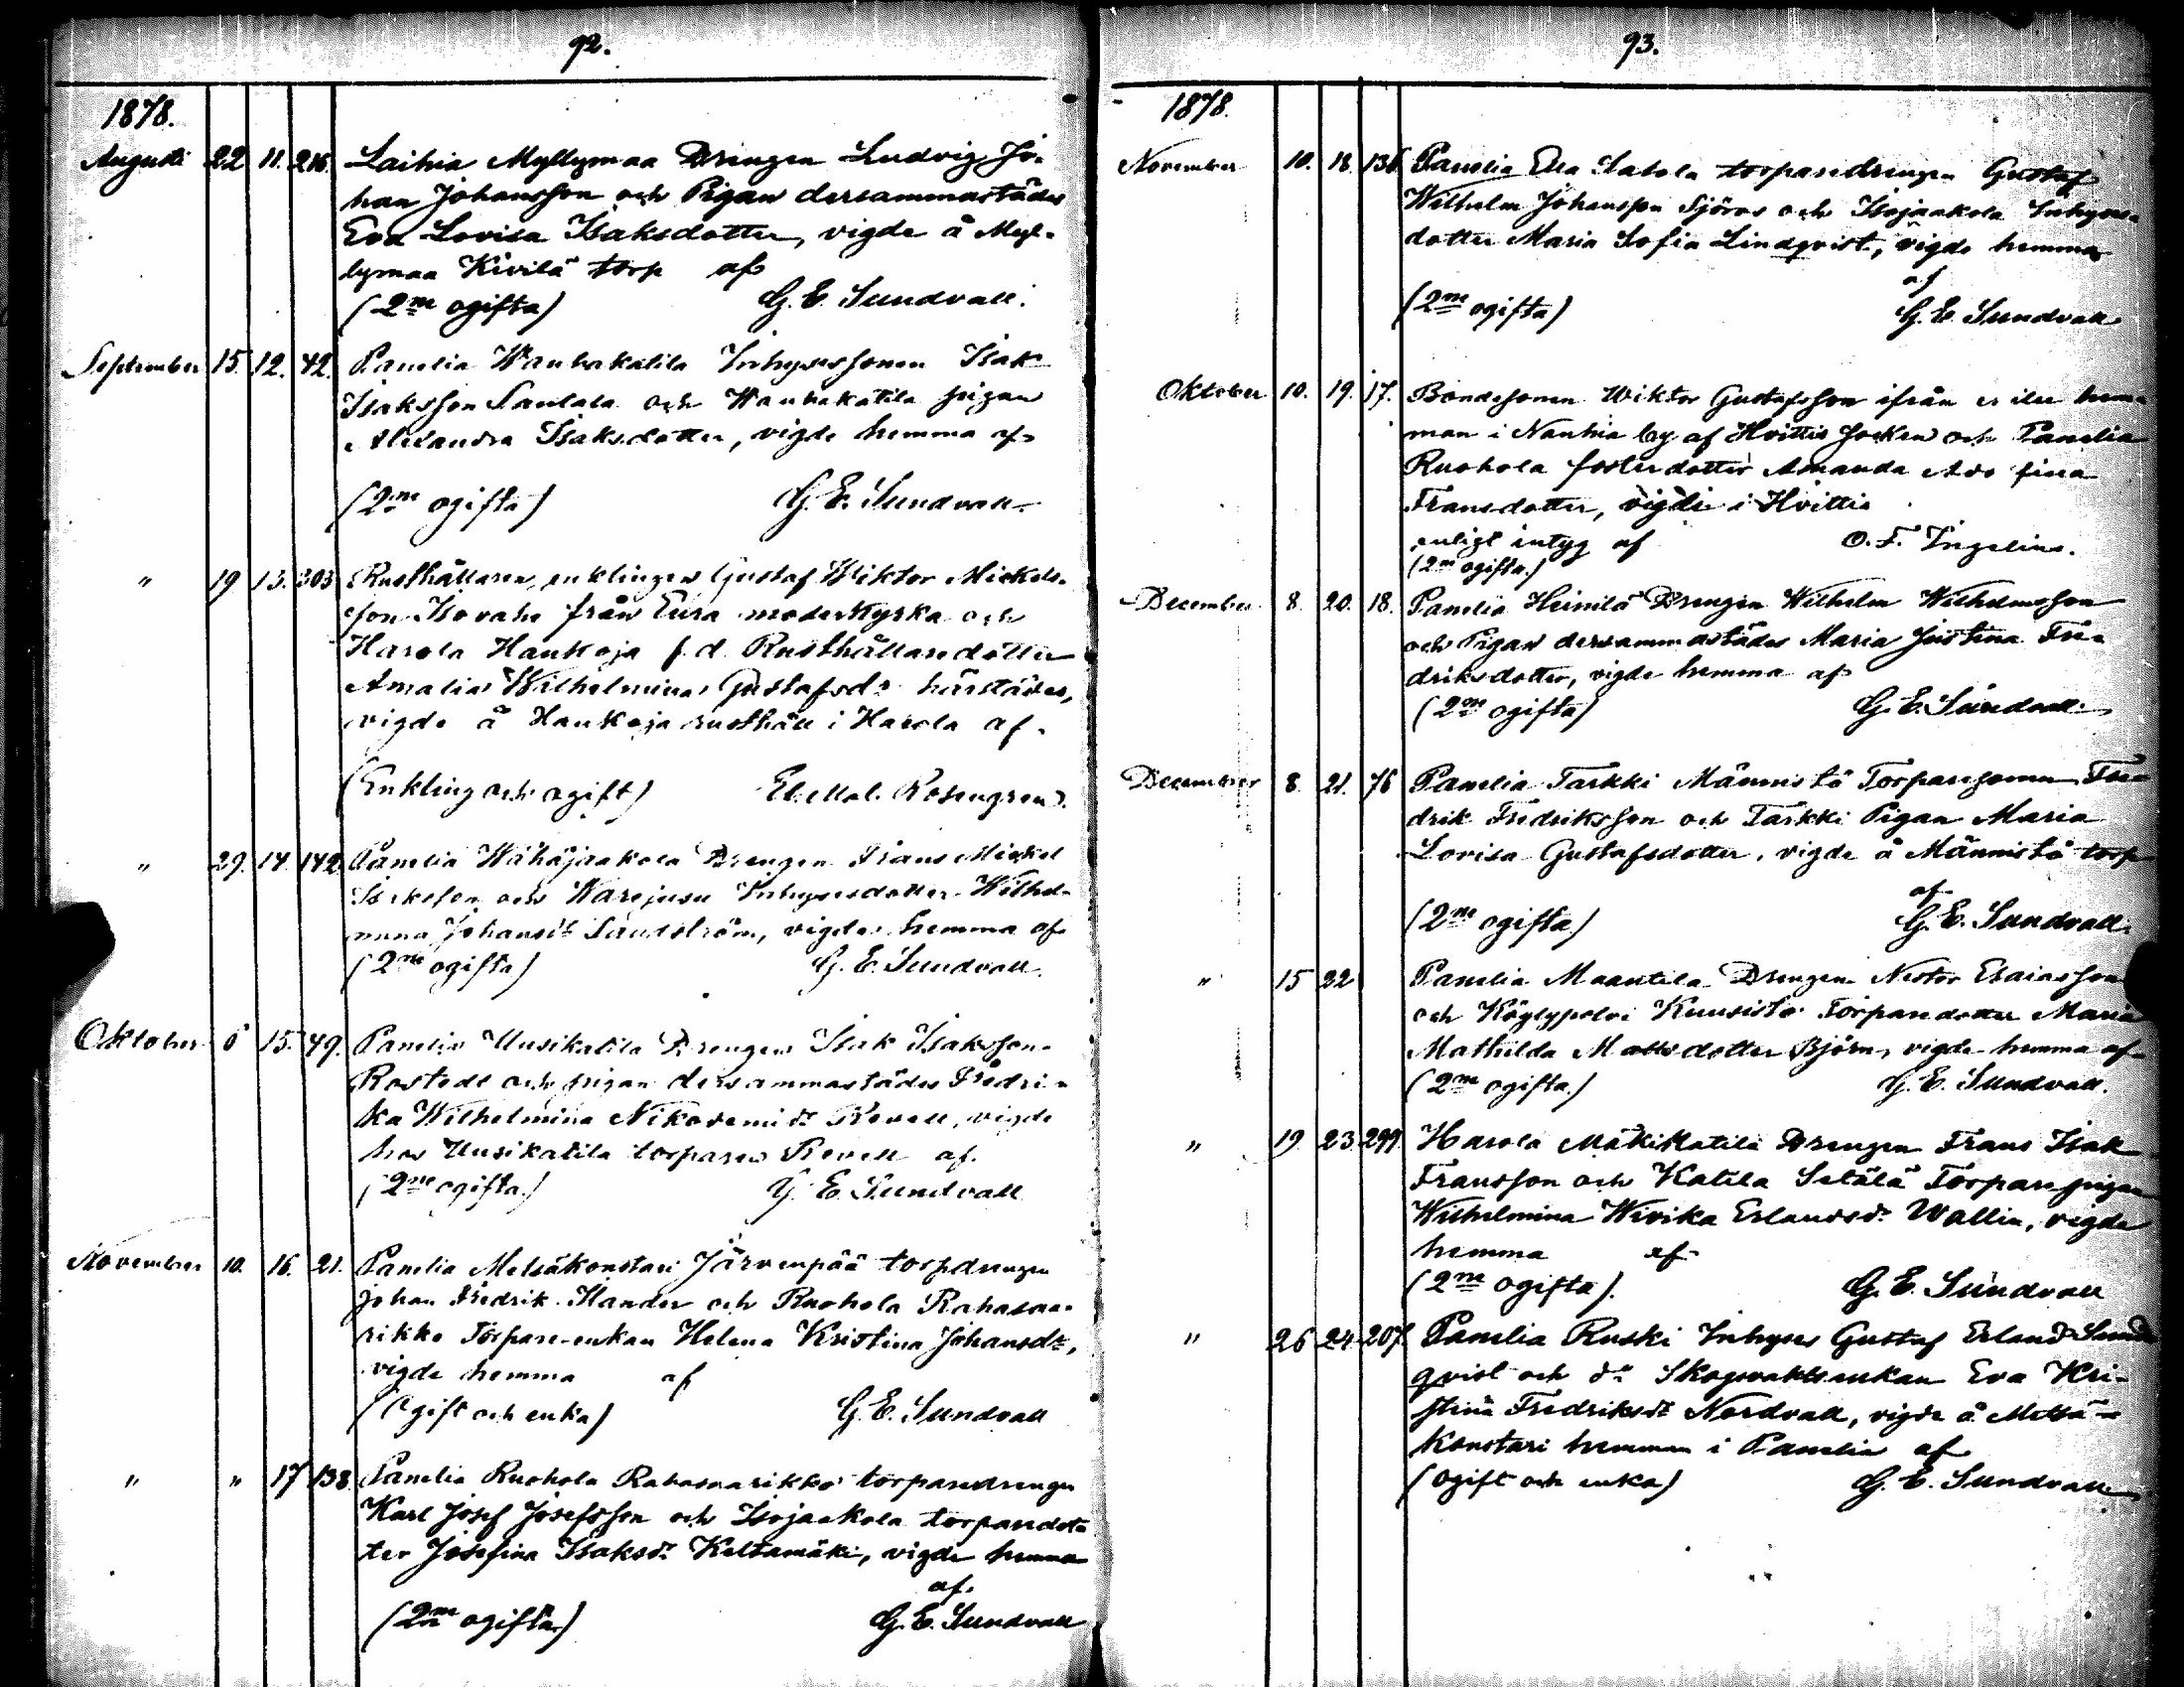 92.
1878.
Augusti 22 11. 216. Laihia Myllymaa Drengen Ludvig Jo-
han Johansson och Pigan dersammastädes
Eva Lovisa Isaksdotter, vigde å Myl-
lymaa Kivilä torp af
(2ne ogifta) G. E. Sundvall.
September 15. 12. 42. Panelia Wanhakatila Inhysessonen Isak
Isaksson Santala och Wanhakatila pigan
Alexandra Isaksdotter, vigde hemma af
(2ne ogifta) G. E. Sundvall
" 19 13. 303 Rusthållaren, enklingen Gustaf Wiktor Mickels-
son Isovahe från Eura moderkyrka och
Harola Haukoja f. d. Rusthållaredotter
Amalia Wilhelmina Gustafsdr härstädes,
vigde å Haukoja rusthåll i Harola af
(Enkling och ogift) Rosengren.
" 29. 14. 142. Panelia Wähäjaakola Drengen Frans Mickel
och Inhysesdotter Wilhel-
mina Johansdr Sandström, vigde hemma af
(2ne ogifta) G. E. Sundvall.
Oktober 6 15. 49. Panelia Uusikatila Drengen Isak Isaksson
Rostedt och pigan dersammastädes Fredri-
ka Wilhelmina Nikodemidr Revell, vigde
hos Uusikatila torparen Revell af
(2ne ogifta.) G. E. Sundvall
November 10. 16. 21. Panelia Metsäkonstari Järvenpää torpdrengen
Johan Fredrik Ilander och Ruohola Rahasaa-
rikko Torpare-enkan Helena Kristina Johansdr,
vigde hemma af
(Ogift och enka) G. E. Sundvall
" " 17 138. Panelia Ruohola Rahasaarikko torparedrengen
Karl Josef Josefsson och Isojaakola torparedot-
ter Josefina Isaksdr Keltamäki, vigde hemma
af
(2ne ogifta) G. E. Sundvall
93.
1878.
November 10. 18. 136. Panelia Eka Satola torparedrengen Gustaf
Wilhelm Johansson Sjöros och Isojaakola Inhyses-
dotter Maria Sofia Lindqvist, vigde hemma
af
(2ne ogifta) G. E. Sundvall
Oktober 10. 19. 17. Bondesonen Wiktor Gustafsson ifrån hem-
man i Nanhia by af Hvittis Socken och Panelia
Ruohola fosterdotter Amanda
Fransdotter, vigde i Hvittis
enligt intyg af O. F. Ingelius.
(2ne ogifta.)
December 8. 20. 18. Panelia Heinilä Drengen Wilhelm Wilhelmsson
och Pigan dersammastädes Maria Justina Fre-
driksdotter, vigde hemma af
(2ne ogifta) G. E. Sundvall.
December 8. 21. 76 Panelia Tarkki Männistö Torparesonen Fre-
drik Fredriksson och Tarkki Pigan Maria
Lovisa Gustafsdotter, vigde å Männistö torp
af
(2ne ogifta) G. E. Sundvall.
" 15 22 Panelia Maantela Drengen Nestor Esaiasson
och Köylypolvi Kuusisto Torparedotter Maria
Mathilda Mattsdotter Björn, vigde hemma af
(2ne ogifta.) G. E. Sundvall.
" 19. 23. 299. Harola Mäkikatila Drengen Frans Isak
Fransson och Katila Setälä Torpare pigan
Wilhelmina Wivika Erlandsdr Wallin, vigde
hemma af
(2ne ogifta). G. E. Sundvall
" 26 24. 207. Panelia Ruski Inhyses Gustaf Erland Sund-
qvist och do Skogvaktsenkan Eva Kri-
stina Fredriksdr Nordvall, vigde å Metsä-
konstari hemman i Panelia af
(Ogift och enka) G. E. Sundvall